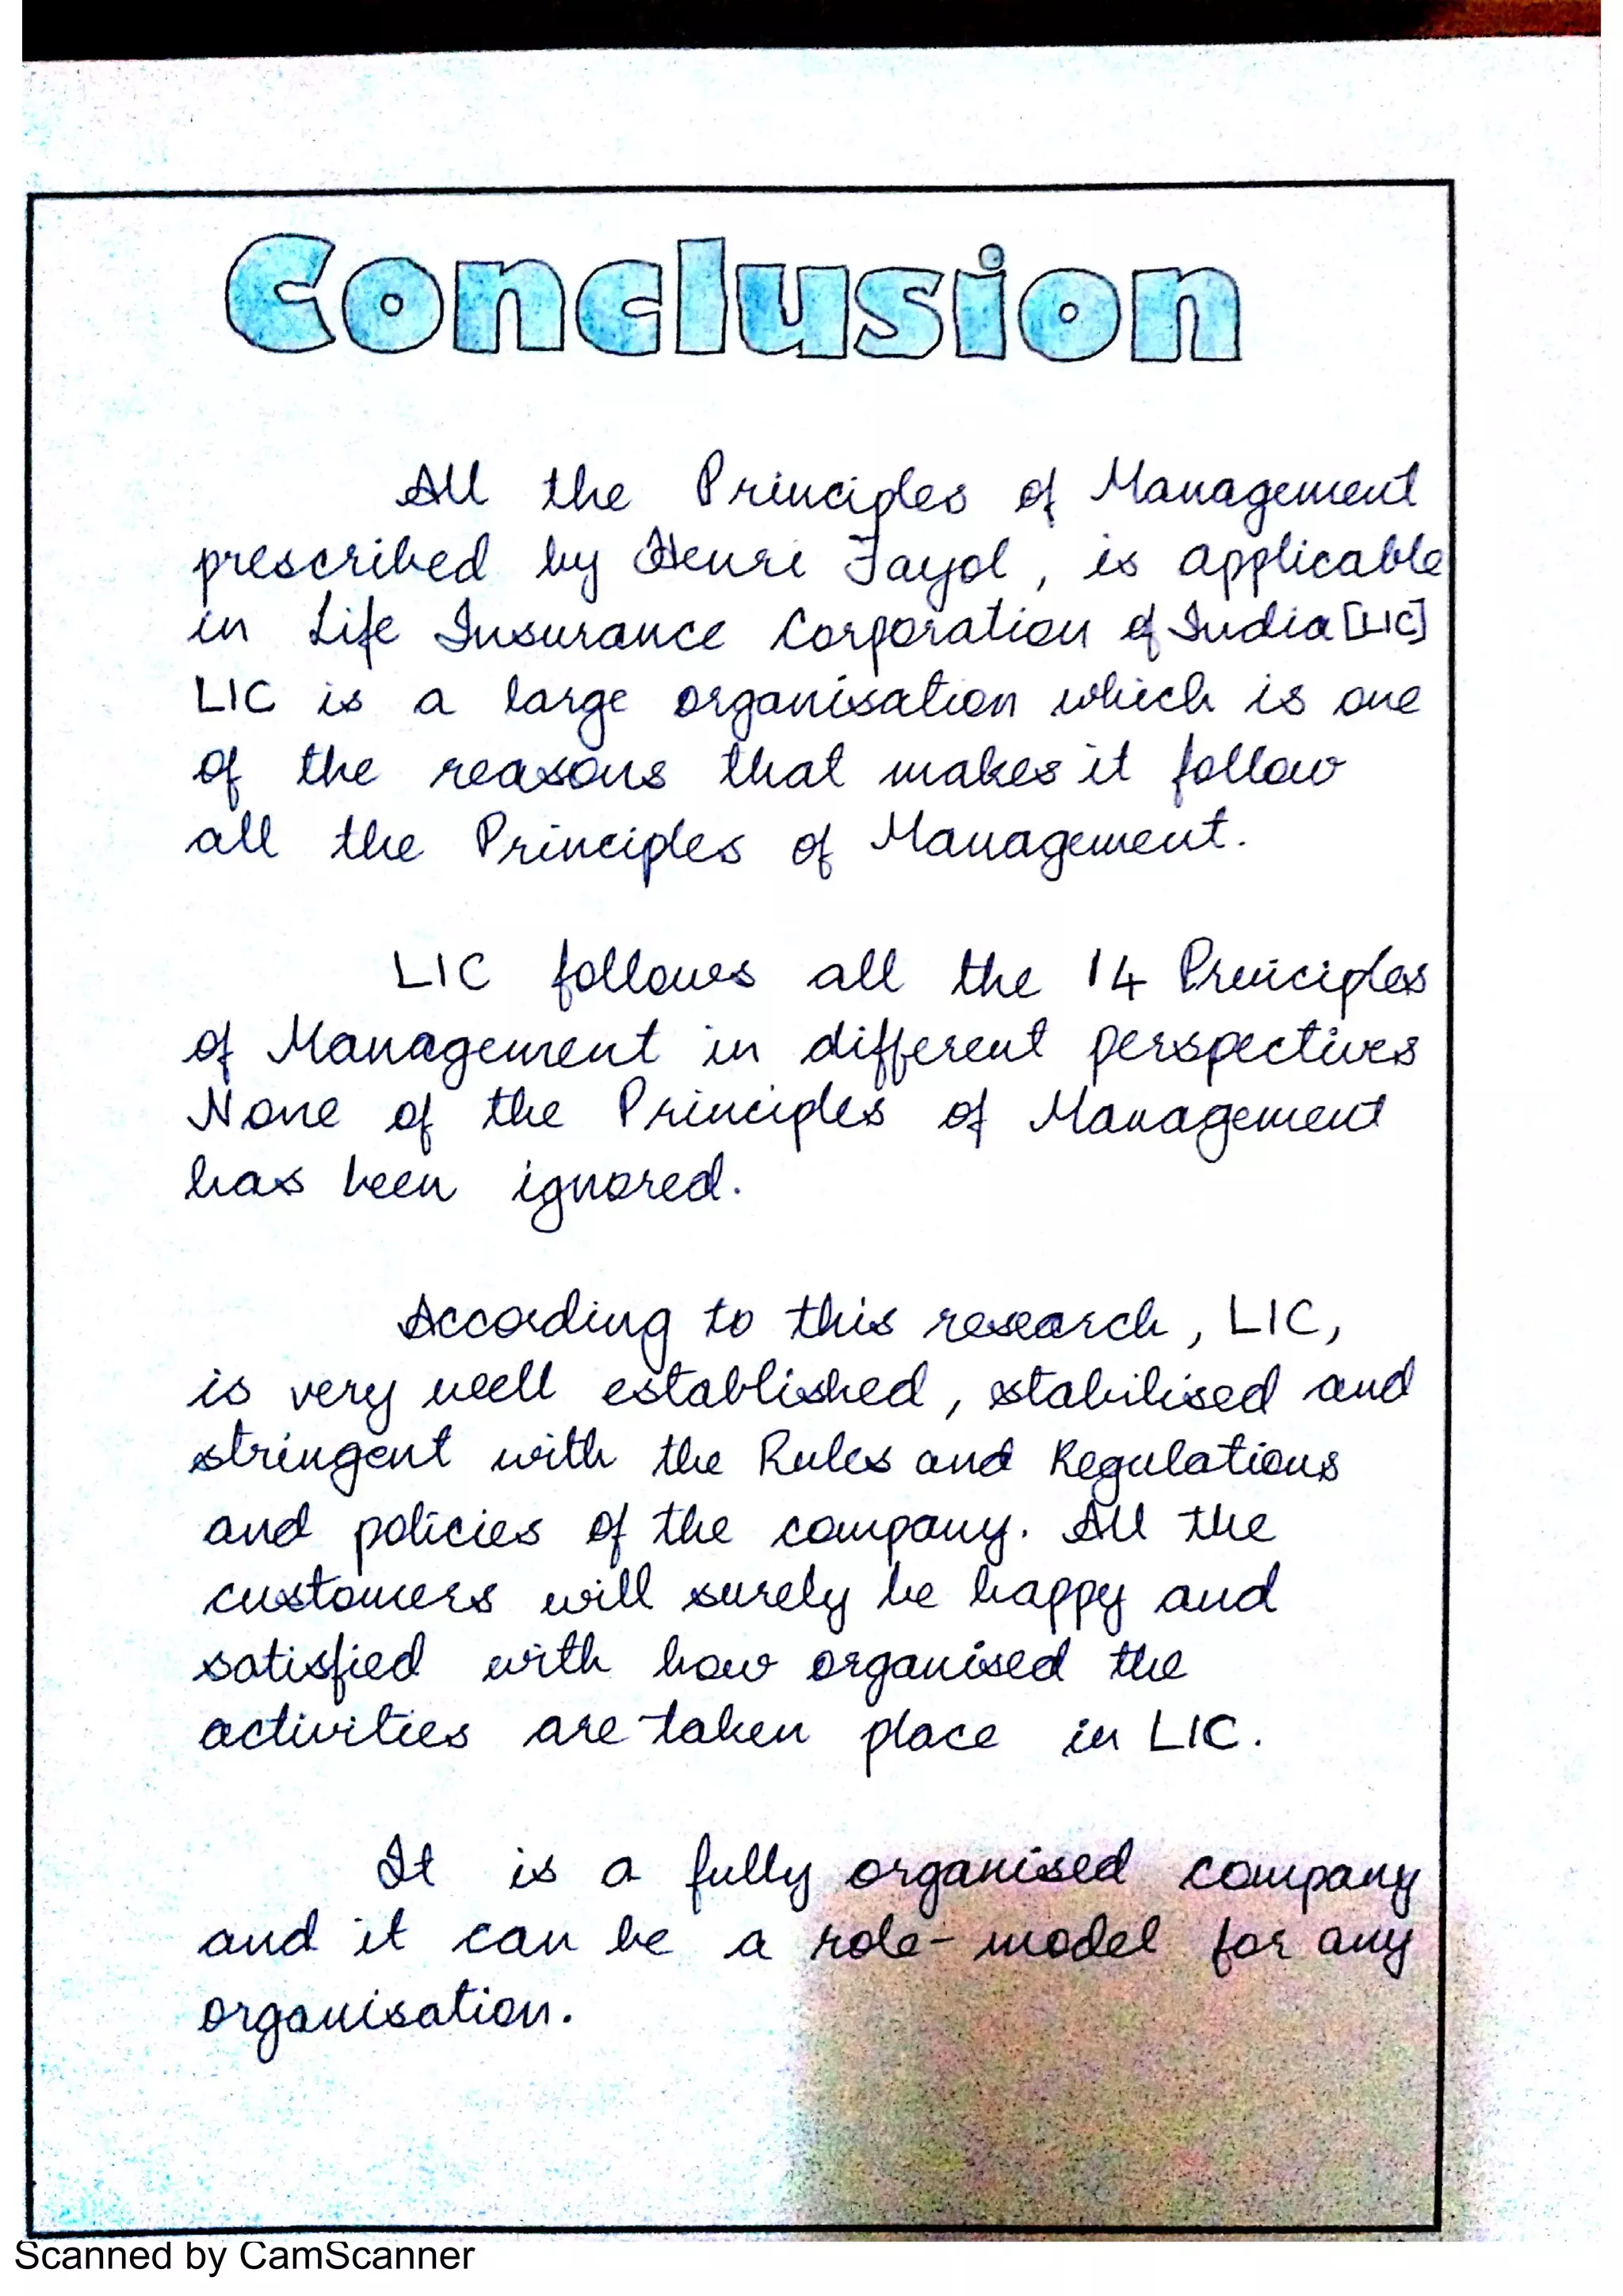 Conclusion
All the Principles of Management
prescribed by Henri Fayol, is applicable
in Life Insurance Corporation of India [LIC]
LIC is a large organisation which is one
of the reasons that makes it follow
all the Principles of Management.
LIC follows all the 14 Principles
of Management in different perspectives
None of the Principles of Management
has been ignored.
According to this research, LIC,
is very well established, stabilised and
stringent with the Rules and Regulations
and policies of the company. All the
customers will surely be happy and
satisfied with how organised the
activities are taken place in LIC.
It is a fully organised company
and it can be a role-model for any
organisation.
Scanned by CamScanner